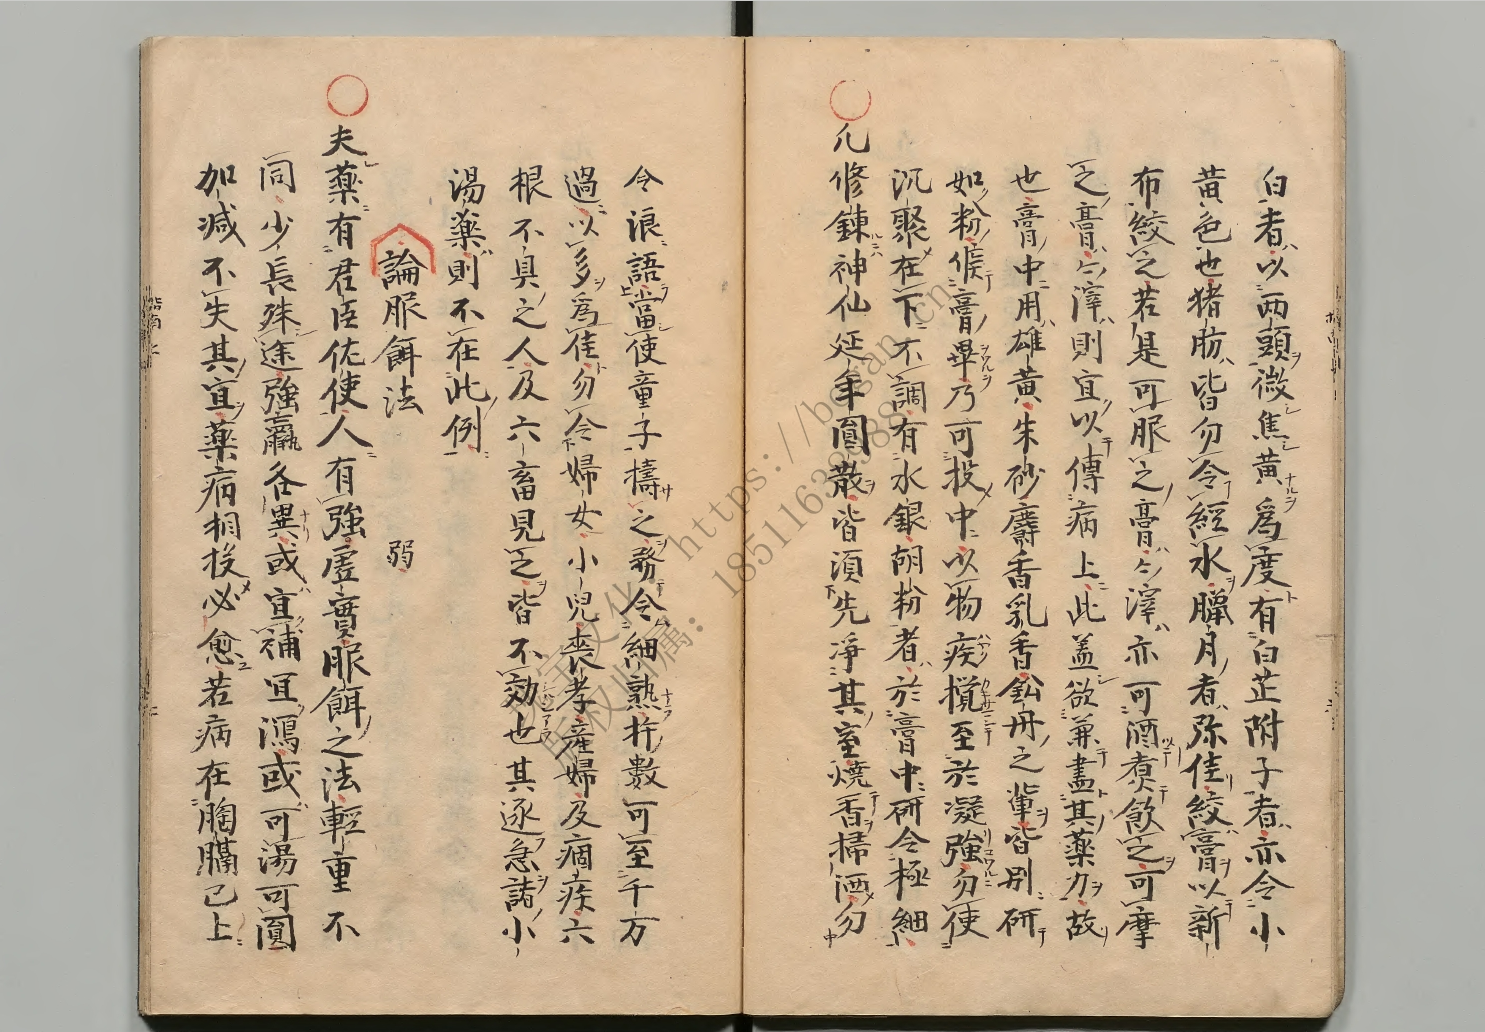 白者以兩頭微焦黃爲度有白芷附子者亦令小
黃色也猪肪皆勿令經水臘月者弥佳絞膏以新
布絞之若是可服之膏々滓亦可酒煮飲之可摩
之膏々滓則宜以傅病上此蓋欲兼盡其藥力故
也膏中用雄黃朱砂麝香乳香鈆丹之輩皆別研
如粉候膏畢乃可投中以物疾攪至於凝強勿使
沉聚在下不調有水銀胡粉者於膏中研令極細
凡修鍊神仙延年圓散皆須先淨其室燒香掃洒勿
令浪語當使童子擣之務令細熟杵數可至千万
過以多爲佳勿令婦女小兒喪孝產婦及痼疾六
根不具之人及六畜見之皆不効也其逐急諸小
湯藥則不在此例
論服餌法
夫藥有君臣佐使人有強虛實服餌之法輕重不
弱
同少長殊途強羸各異或宜補宜瀉或可湯可圓
加減不失其宜藥病相投必愈若病在胸膈已上
https://bogan.cn
18511638988